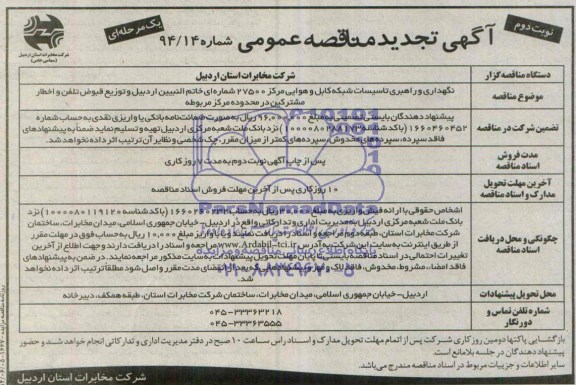 نوبت دوم
آگهی تجدید مناقصه عمومی شماره ۹۴/۱۴
یک مرحله‌ای
شرکت مخابرات استان اردبیل
(سهامی خاص)
دستگاه مناقصه گزار
شرکت مخابرات استان اردبیل
موضوع مناقصه
نگهداری و راهبری تاسیسات شبکه کابل و هوایی مرکز ۲۷۵۰۰ شماره‌ای خاتم النبیین اردبیل و توزیع قبوض تلفن و اخطار
مشترکین در محدوده مرکز مربوطه
تضمین شرکت در مناقصه
پیشنهاد دهندگان بایستی تضمینی به مبلغ ۹۶,۰۰۰,۰۰۰ ریال به صورت ضمانت‌نامه بانکی یا واریزی نقدی به حساب شماره
نزد بانک ملت شعبه مرکزی اردبیل تهیه و تسلیم نماید ضمناً به پیشنهادهای
فاقد سپرده، سپرده‌های مخدوش، سپرده‌های کمتر از میزان مقرر، چک شخصی و نظایر آن ترتیب اثر داده نخواهد شد.
مدت فروش
اسناد مناقصه
پس از چاپ آگهی نوبت دوم به مدت ۷ روز کاری
آخرین مهلت تحویل
مدارک و اسناد مناقصه
۱۰ روز کاری پس از آخرین مهلت فروش اسناد مناقصه
چگونگی و محل دریافت
اسناد مناقصه
اشخاص حقوقی با ارائه فیش واریزی به مبلغ
بانک ملت شعبه مرکزی اردبیل به مدیریت اداری و تدارکاتی واقع در اردبیل- خیابان جمهوری اسلامی، میدان مخابرات، ساختمان
شرکت مخابرات استان، طبقه دوم مراجعه و اسناد را دریافت نمایند و یا با واریز مبلغ ۱۰,۰۰۰ ریال به حساب فوق در مهلت مقرر
از طریق اینترنت به سایت این شرکت به آدرس www.Ardabil-tci.ir مراجعه و اسناد را دریافت دارند و جهت اطلاع از آخرین
تغییرات احتمالی در اسناد مناقصه بایستی تا پایان مهلت تحویل پیشنهادات به سایت مذکور مراجعه نمایند. در ضمن به پیشنهادهای
فاقد امضاء، مشروط، مخدوش، فاقد لاک و مهر و پیشنهادهایی که بعد از انقضای مدت مقرر واصل شود مطلقا ترتیب اثر داده نخواهد
شد.
محل تحویل پیشنهادات
اردبیل- خیابان جمهوری اسلامی، میدان مخابرات، ساختمان شرکت مخابرات استان، طبقه همکف، دبیرخانه
شماره تلفن تماس و
دورنگار
۰۴۵-۳۳۳۶۳۲۱۸
۰۴۵-۳۳۳۶۳۵۵۵
بازگشایی پاکتها دومین روز کاری شرکت پس از اتمام مهلت تحویل مدارک و اسناد راس ساعت ۱۰ صبح در دفتر مدیریت اداری و تدارکاتی انجام خواهد شد و حضور
پیشنهاد دهندگان در جلسه بلامانع است.
سایر اطلاعات و جزییات مربوط در اسناد مناقصه مندرج می‌باشد.
شرکت مخابرات استان اردبیل